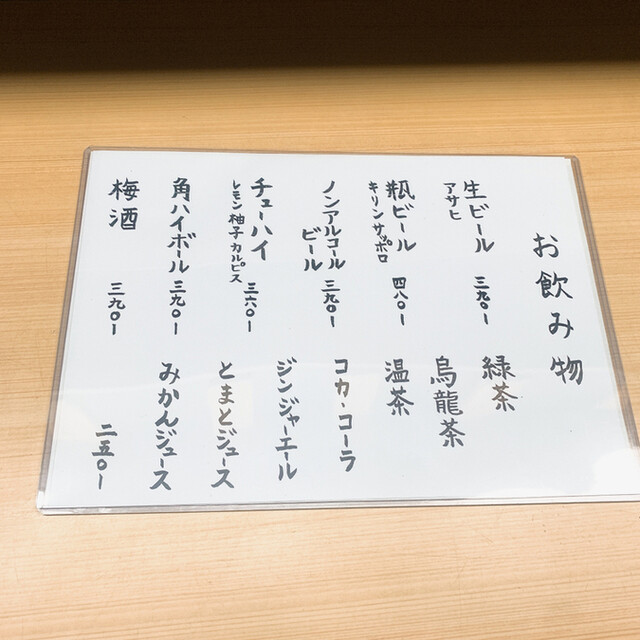 お飲み物
生ビール 三九〇ー
アサヒ
瓶ビール 四八〇ー
キリンサッポロ
ノンアルコール
ビール 三九〇ー
チューハイ 三六〇ー
レモン柚子カルピス
角ハイボール 三九〇ー
梅酒 三九〇ー
緑茶
烏龍茶
温茶
コカ・コーラ
ジンジャーエール
とまとジュース
みかんジュース
二五〇ー